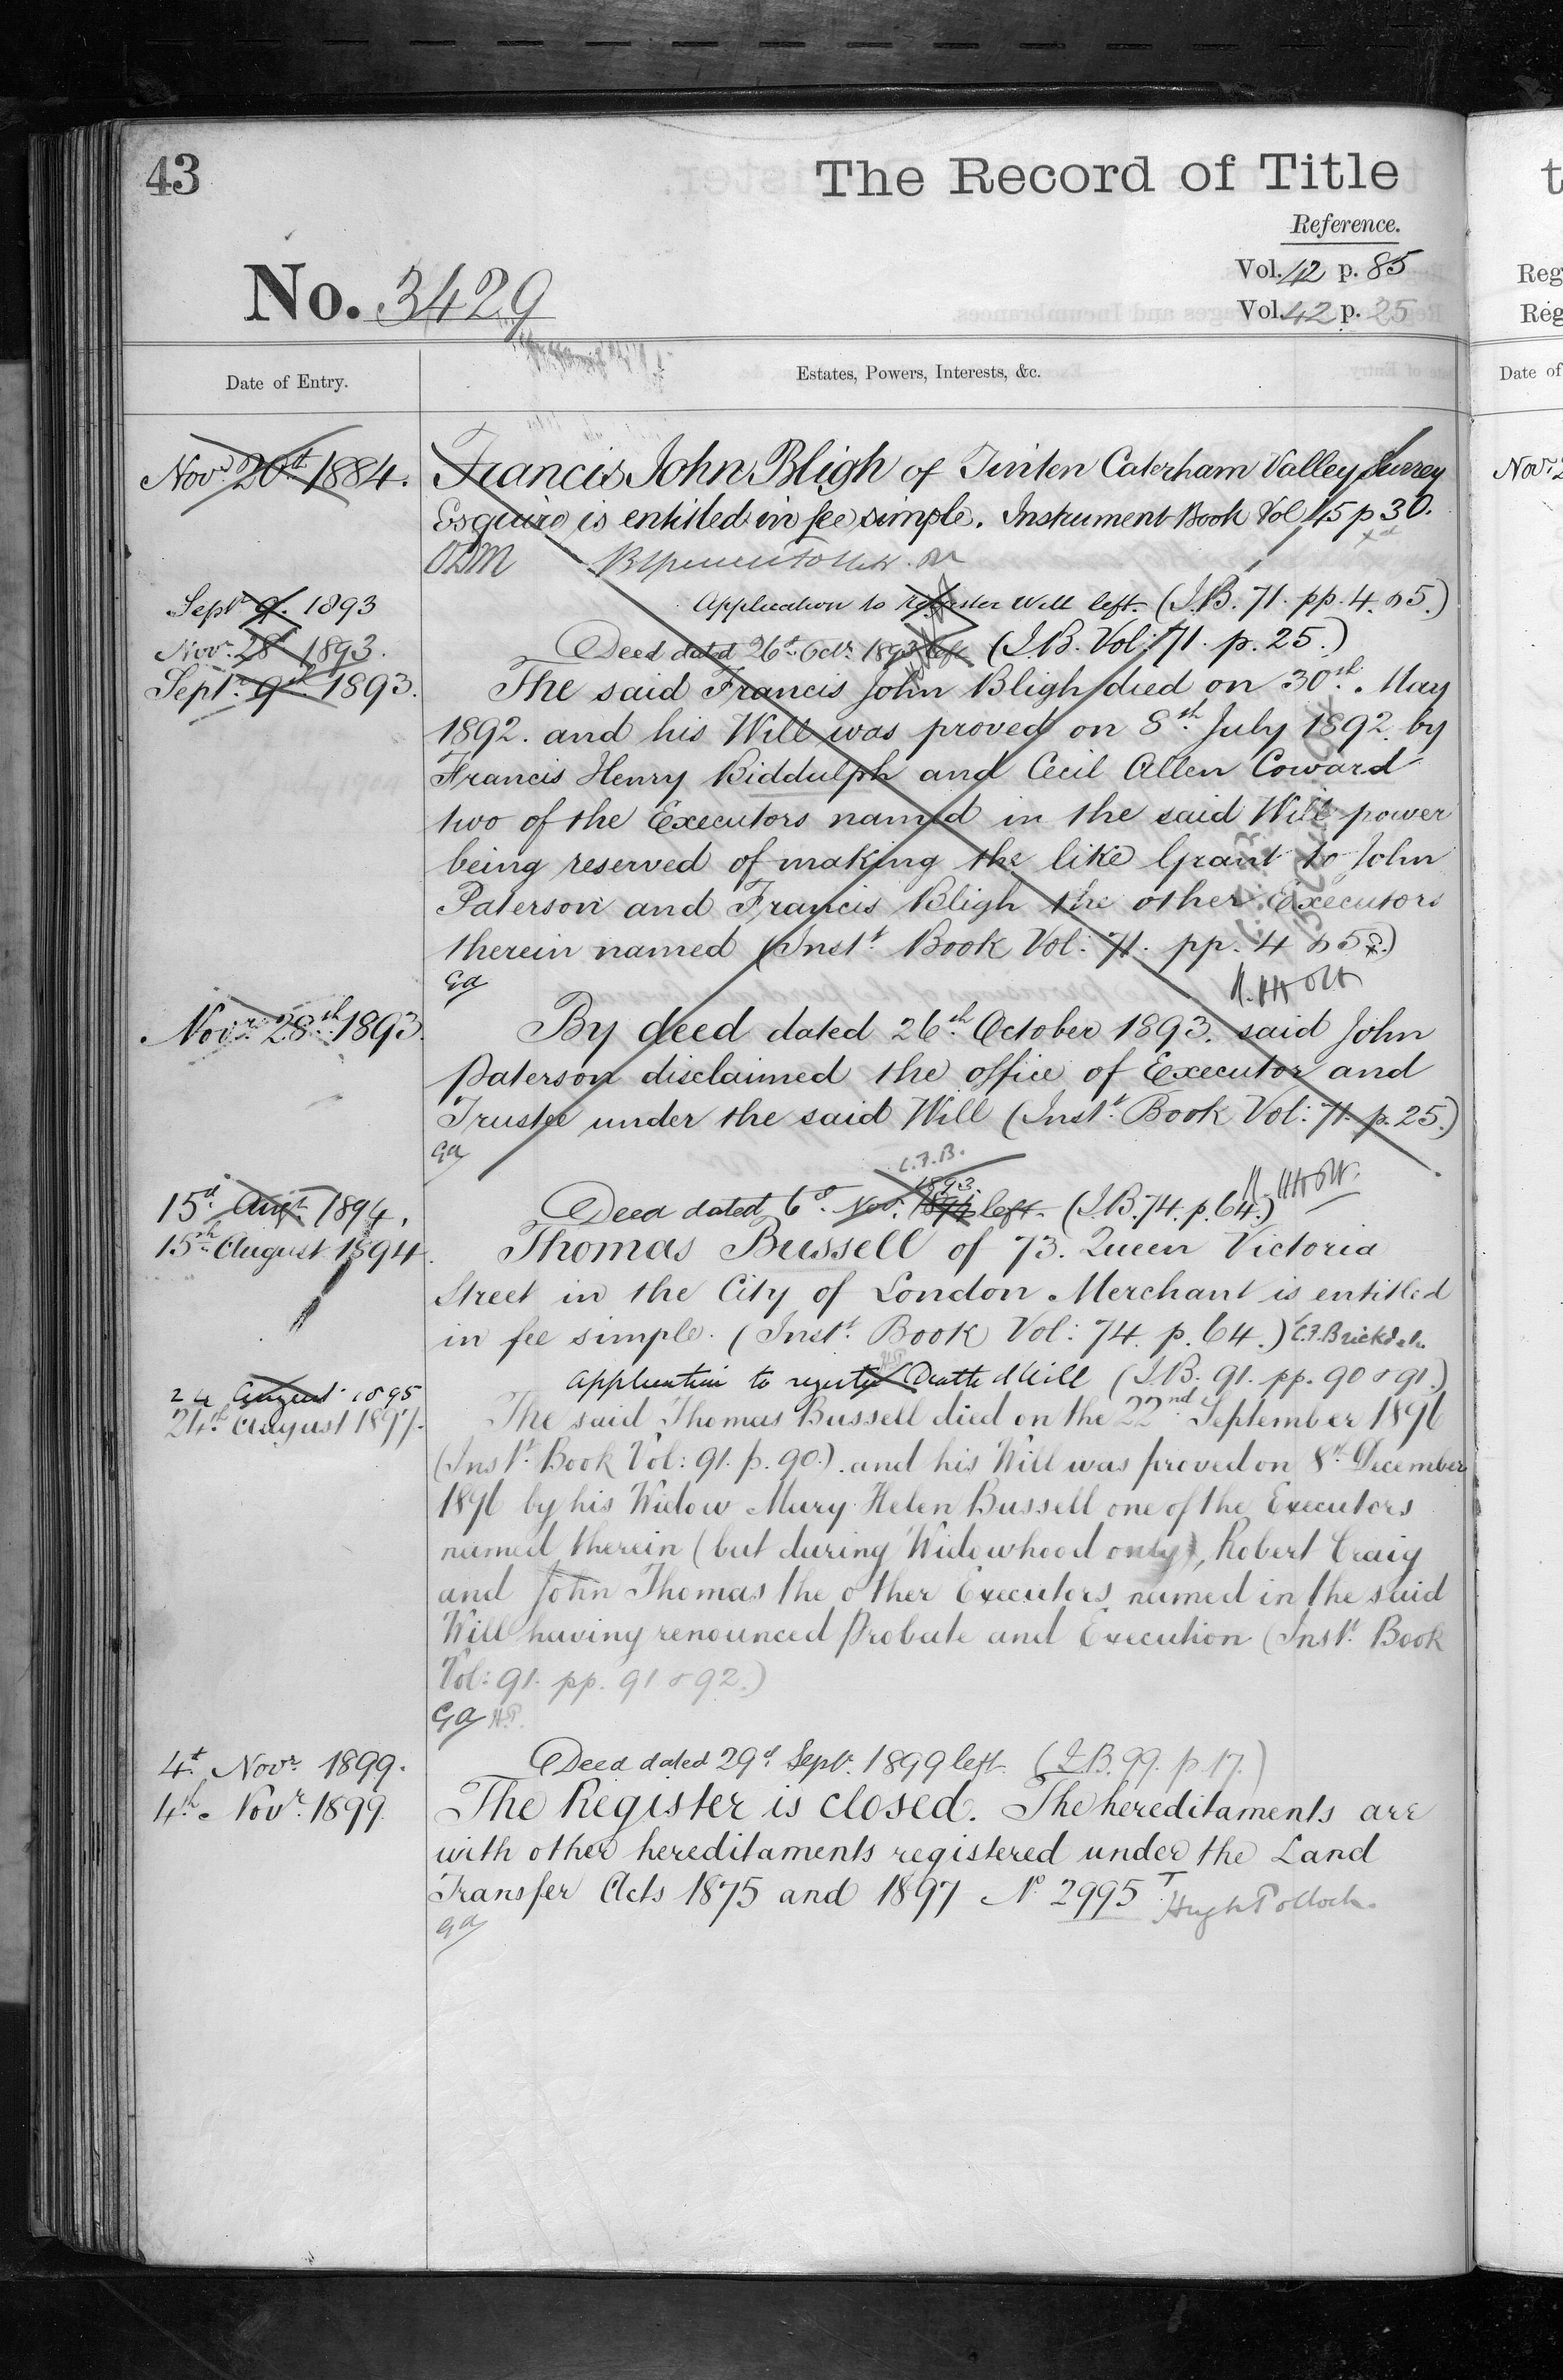 43
The Record of Title
Reference.
Vol. 42 p. 85
No. 3429
Vol. 42 p. 25
Date of Entry.
Estates, Powers, Interests, &c.
Novr 20th 1884. Francis John Bligh of Tinten Caterham Valley Surrey
Esquire is entitled in fee simple. Instrument Book Vol 45 p 30.
Septr 9. 1893 Application to Register Will left. (I.B. 71. pp. 4 & 5.)
Novr 28th 1893. Deed dated 26th Octr 1893 left (I.B. Vol: 71. p. 25.)
Septr 9th 1893. The said Francis John Bligh died on 30th May
1892. and his Will was proved on 8th July 1892. by
Francis Henry Biddulph and Cecil Allen Coward
two of the Executors named in the said Will power
being reserved of making the like Grant to John
Paterson and Francis Bligh the other Executors
therein named (Instt Book Vol: 71. pp. 4 & 5.)
Ga
Novr 28th 1893. By deed dated 26th October 1893. said John
Paterson disclaimed the office of Executor and
Trustee under the said Will (Instt Book Vol: 71. p. 25.)
Ga
C.F.B.
1893.
15th Augt 1894. Deed dated 6th Nov. 1894 left. (I.B. 74. p. 64.)
15th August 1894. Thomas Bussell of 73. Queen Victoria
Street in the City of London Merchant is entitled
in fee simple. (Instt Book Vol: 74. p. 64.) C.F. Brickdale
24 August 1895 Application to register Death & Will (I.B. 91. pp. 90 & 91.)
24th August 1897. The said Thomas Bussell died on the 22nd September 1896
(Instt Book Vol: 91. p. 90.) and his Will was proved on 8th December
1896 by his Widow Mary Helen Bussell one of the Executors
named therein (but during Widowhood only), Robert Craig
and John Thomas the other Executors named in the said
Will having renounced Probate and Execution (Instt Book
Vol: 91. pp. 91 & 92.)
Ga H.P.
4th Novr 1899. Deed dated 29th Sept. 1899 left. (I.B. 99. p. 17.)
4th Novr 1899. The Register is closed. The hereditaments are
with other hereditaments registered under the Land
Transfer Acts 1875 and 1897 No 2995 Hugh Pollock.
Ga
t
Reg
Reg
Date of
Novr 2